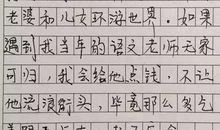 老婆和儿女环游世界。如果
遇到我当年的语文老师无家
可归，我会给他点钱，不让
他流浪街头，毕竟那么多气